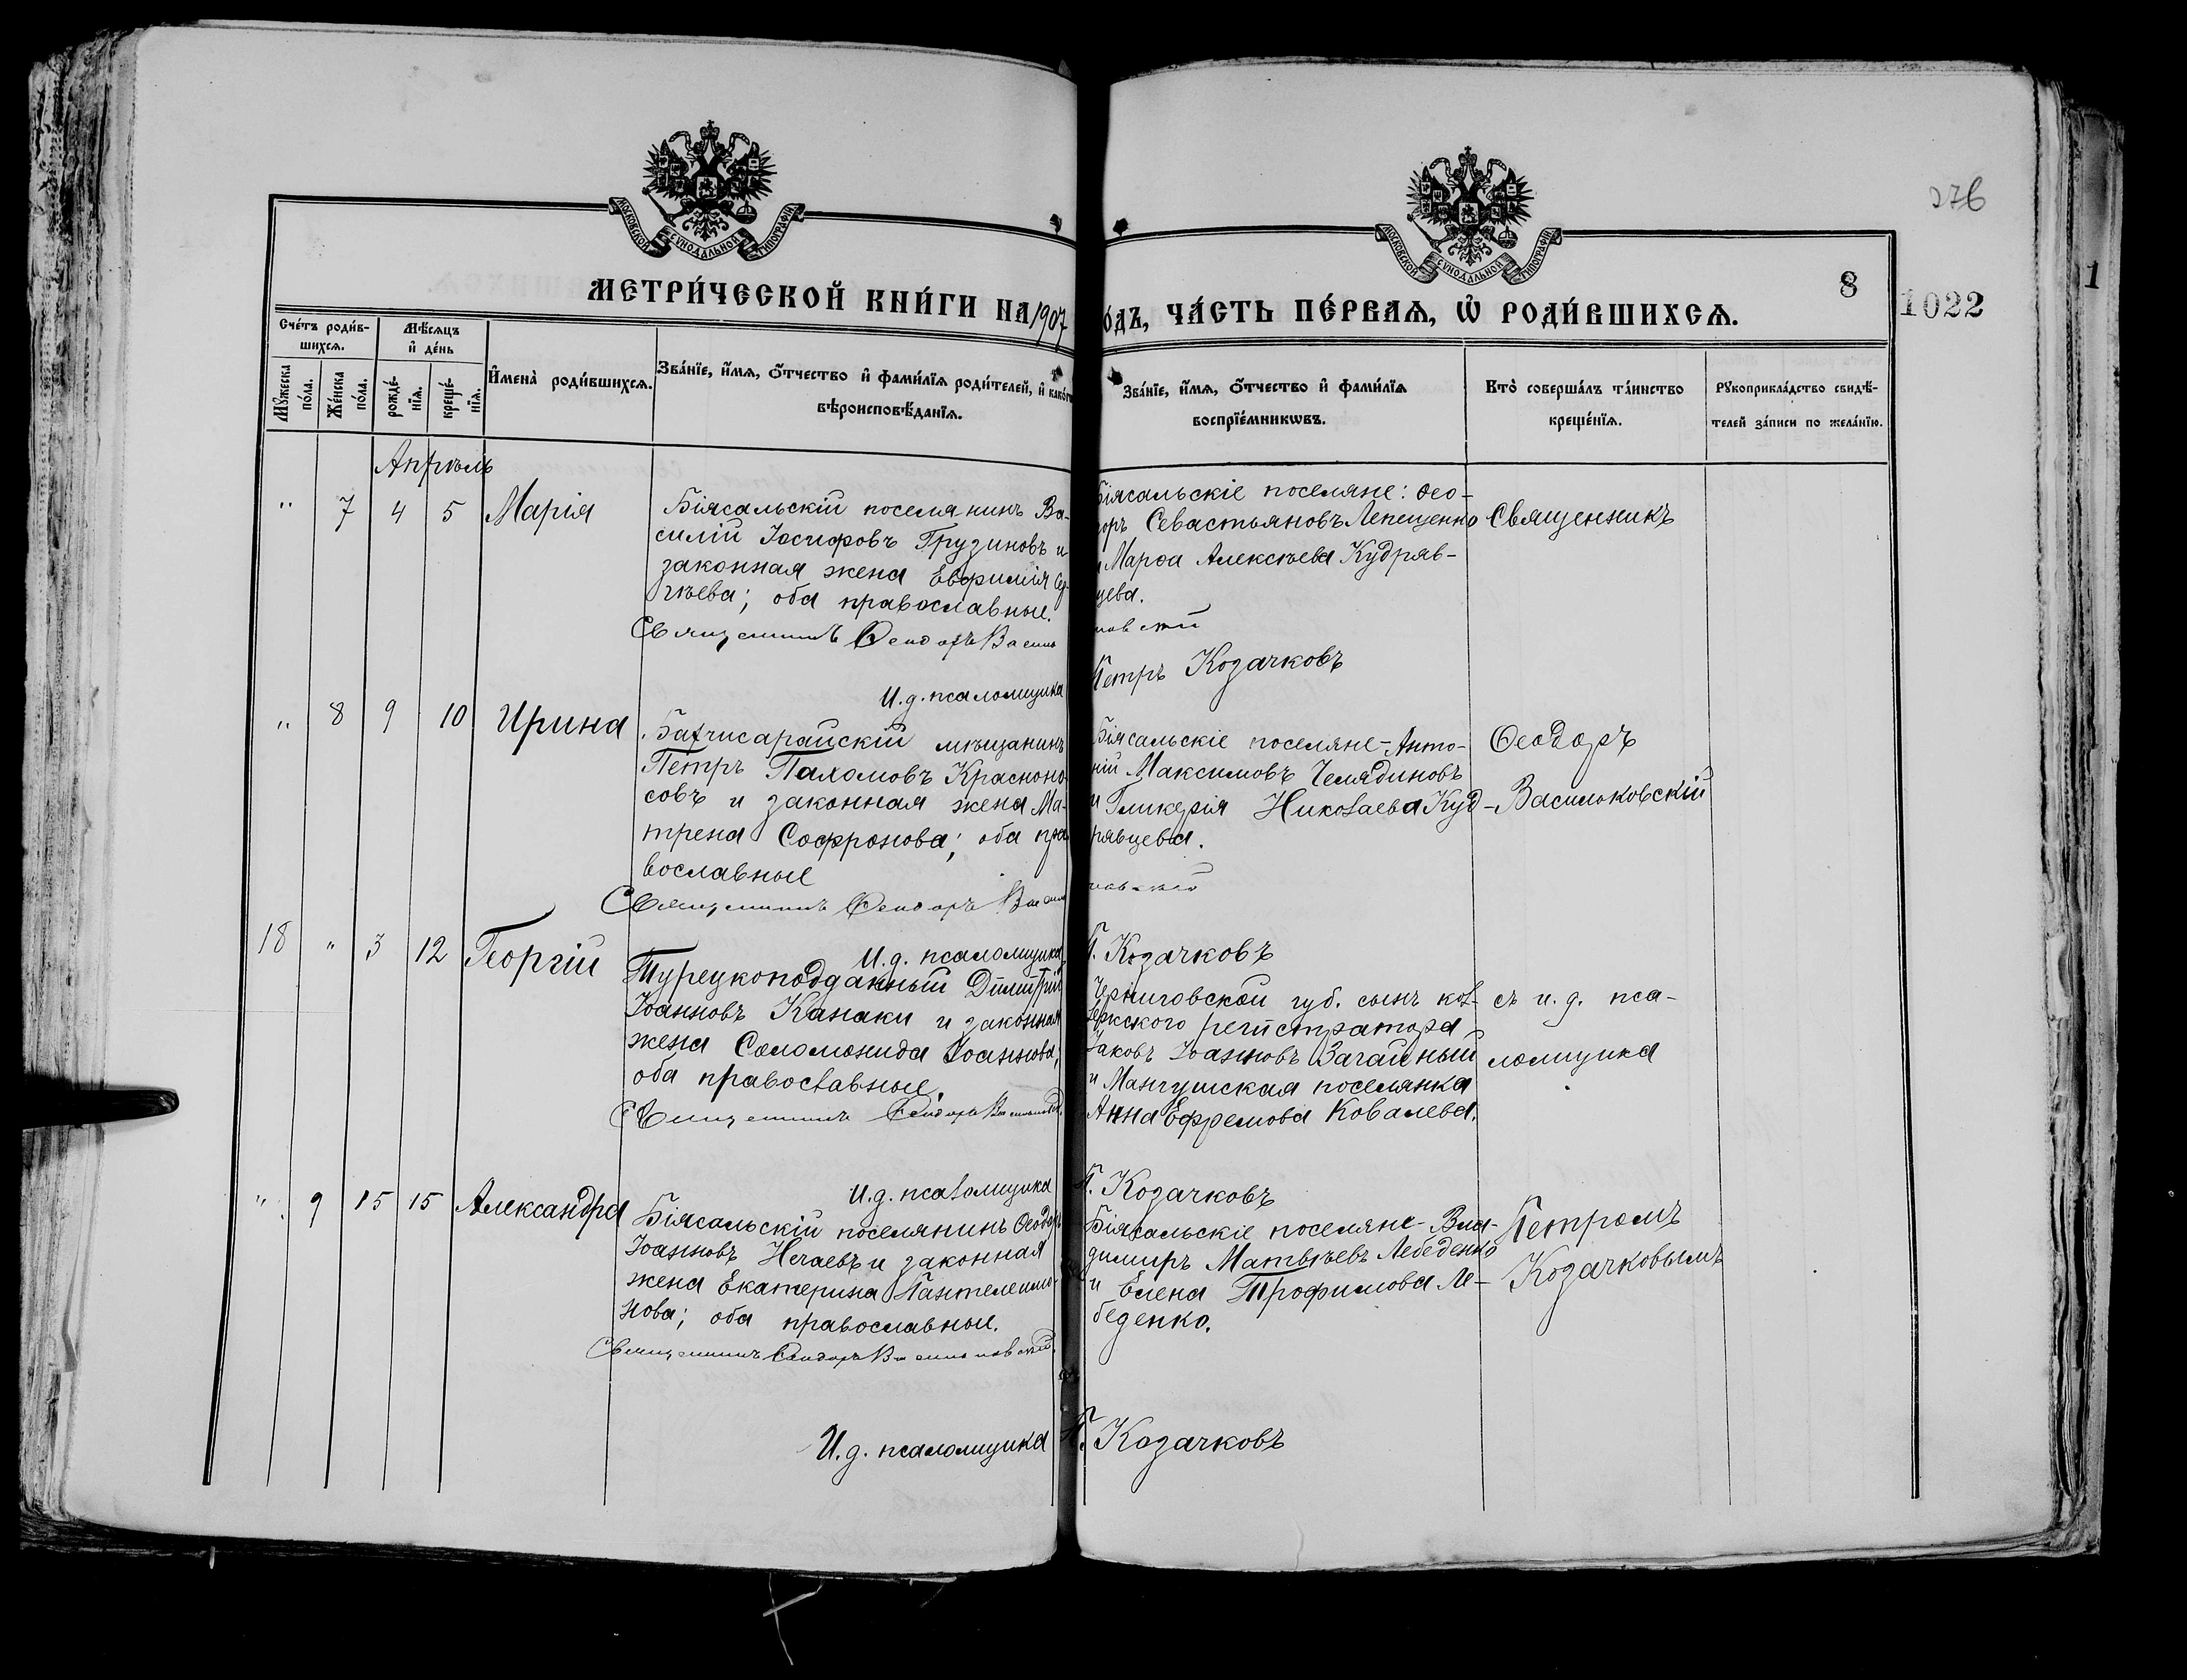 МОСКОВСКОЙ СУНОДАЛЬНОЙ ТИПОГРАФІИ
МОСКОВСКОЙ СУНОДАЛЬНОЙ ТИПОГРАФІИ
276
МЕТРИ́ЧЕСКОЙ КНИ́ГИ НА 1907
о́дъ, ЧА́СТЬ ПЕ́РВАѦ, Ѡ҆ РОДИ́ВШИХСѦ.
8
1022
1
Сче́тъ роди́в-
шихсѧ.
Мѣ́сѧцъ
и҆ де́нь
Мꙋ́жеска
по́ла.
Же́нска
по́ла.
рожде́-
нїѧ.
креще́-
нїѧ.
И҆мена̀ роди́вшихсѧ.
Зва́нїе, и҆́мѧ, ѻ҆́тчество и҆ фами́лїѧ роди́телей, и҆ како́г
вѣроисповѣ́данїѧ.
Зва́нїе, и҆́мѧ, ѻ҆́тчество и҆ фами́лїѧ
воспрїе́мникѡвъ.
Кто̀ соверша́лъ та́инство
креще́нїѧ.
Рꙋкоприкла́дство свидѣ́-
телей за́писи по жела́нїю.
Апрѣль
" 7 4 5 Марія
Біясальскій поселянинъ Ва-
силій Іосифовъ Грузиновъ и
законная жена Евфимія Се-
ргѣева; оба православные.
Священникъ Ѳеодоръ Василь
Біясальскіе поселяне: Ѳео-
доръ Севастьяновъ Лепещенко
и Марѳа Алексѣева Кудряв-
цева.
ковскій
Священникъ
И. д. псаломщика
Петръ Козачковъ
" 8 9 10 Ирина
Бахчисарайскій мѣщанинъ
Петръ Пахомовъ Красноно-
совъ и законная жена Ма-
трена Софронова; оба пра
вославные
Священникъ Ѳеодоръ Василь
Біясальскіе поселяне - Анто-
ній Максимовъ Челядиновъ
и Гликерія Николаева Куд-
рявцева.
ковскій
Ѳеодоръ
Васильковскій
И. д. псаломщика
П. Козачковъ
18 " 3 12 Георгій
Турецкоподданный Димитрій
Іоанновъ Канаки и законная
жена Соломонида Іоаннова;
оба православные.
Священникъ Ѳеодоръ Васильковскій
Черниговской губ. сынъ кол-
лержского регистратора
Іаковъ Іоанновъ Загайный
и Мангушская поселянка
Анна Ефремова Ковалева.
съ и. д. пса-
ломщика
И. д. псаломщика
П. Козачковъ
" 9 15 15 Александра
Біясальскій поселянинъ Ѳеодоръ
Іоанновъ Нечаевъ и законная
жена Екатерина Пантелеимо-
нова; оба православные.
Священникъ Ѳеодоръ Васильковскій
Біясальскіе поселяне - Вла-
димиръ Матвѣевъ Лебеденко
и Елена Трофимова Ле-
беденко.
Петромъ
Козачковымъ
И. д. псаломщика
П. Козачковъ